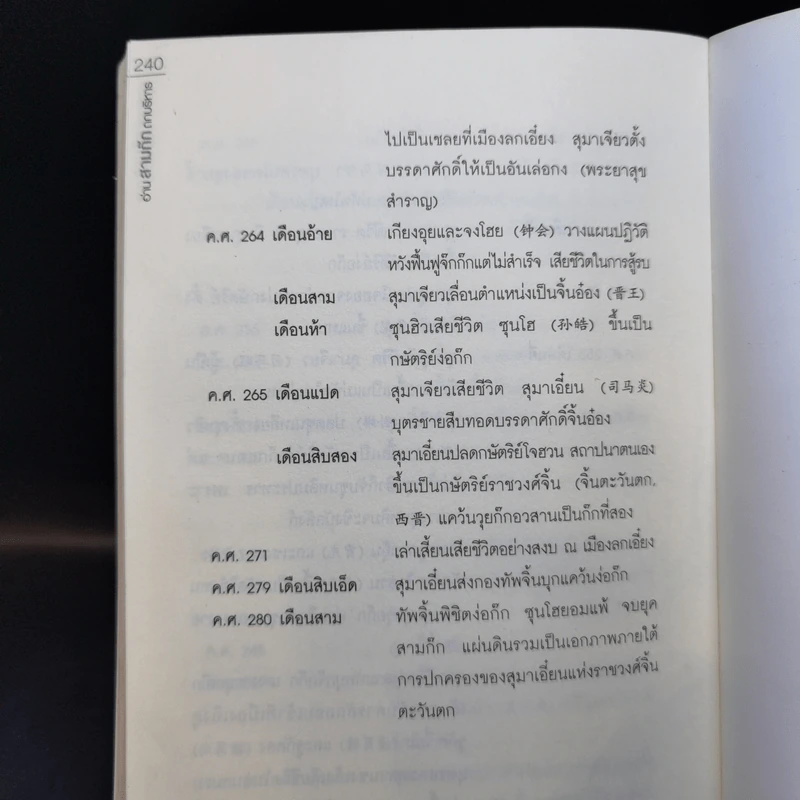 240
อ่าน สามก๊ก ถกบริหาร
ไปเป็นเชลยที่เมืองลกเอี๋ยง สุมาเจียวตั้ง
บรรดาศักดิ์ให้เป็นอันเล่อกง (พระยาสุข
สำราญ)
ค.ศ. 264 เดือนอ้าย เกียงอุยและจงโฮย (钟会) วางแผนปฏิวัติ
หวังฟื้นฟูจ๊กก๊กแต่ไม่สำเร็จ เสียชีวิตในการสู้รบ
เดือนสาม สุมาเจียวเลื่อนตำแหน่งเป็นจิ้นอ๋อง (晋王)
เดือนห้า ซุนฮิวเสียชีวิต ซุนโฮ (孙皓) ขึ้นเป็น
กษัตริย์ง่อก๊ก
ค.ศ. 265 เดือนแปด สุมาเจียวเสียชีวิต สุมาเอี๋ยน (司马炎)
บุตรชายสืบทอดบรรดาศักดิ์จิ้นอ๋อง
เดือนสิบสอง สุมาเอี๋ยนปลดกษัตริย์โจฮวน สถาปนาตนเอง
ขึ้นเป็นกษัตริย์ราชวงศ์จิ้น (จิ้นตะวันตก,
西晋) แคว้นวุยก๊กอวสานเป็นก๊กที่สอง
ค.ศ. 271 เล่าเสี้ยนเสียชีวิตอย่างสงบ ณ เมืองลกเอี๋ยง
ค.ศ. 279 เดือนสิบเอ็ด สุมาเอี๋ยนส่งกองทัพจิ้นบุกแคว้นง่อก๊ก
ค.ศ. 280 เดือนสาม ทัพจิ้นพิชิตง่อก๊ก ซุนโฮยอมแพ้ จบยุค
สามก๊ก แผ่นดินรวมเป็นเอกภาพภายใต้
การปกครองของสุมาเอี๋ยนแห่งราชวงศ์จิ้น
ตะวันตก